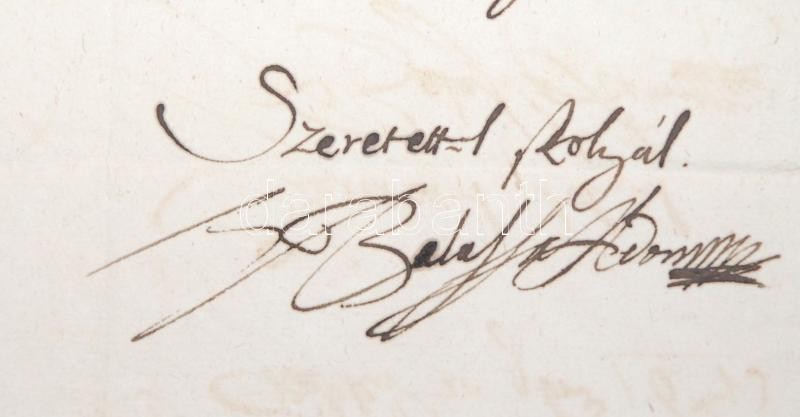 Szeretettel szolgál.
Gr Balassa Ádám
darabanth